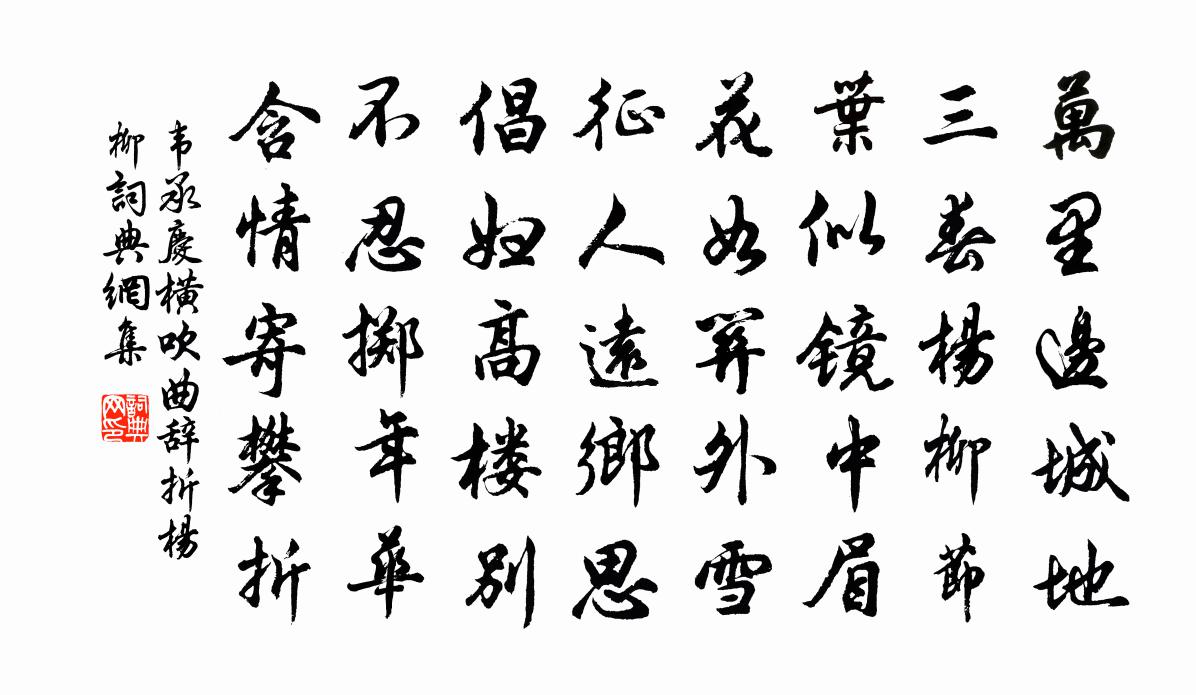 萬里邊城地
三春楊柳節
葉似鏡中眉
花如關外雪
征人遠鄉思
倡婦高楼別
不忍掷年華
含情寄攀折
韦承慶横吹曲辞折楊
柳詞典網集
詞典网印